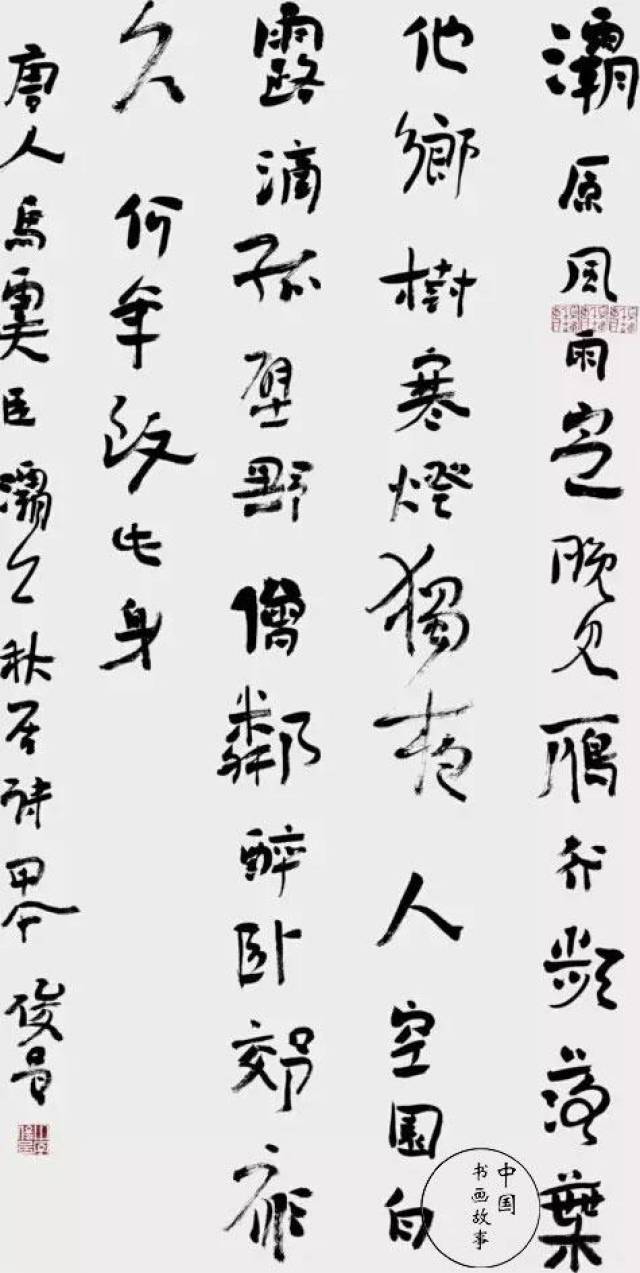 灞原風雨定晚見鴈行頻落葉
他鄉樹寒燈獨夜人空園白
露滴孤壁野僧鄰醉臥郊扉
久何年致此身
唐人馬虞臣灞上秋居詩甲午俊
中国
书画故事